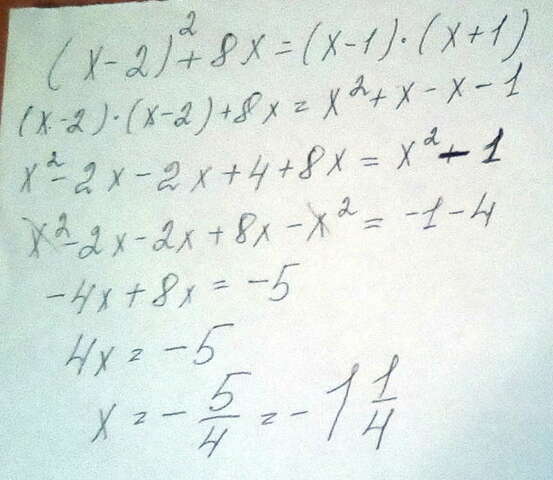 (x-2)²+8x=(x-1)·(x+1)
(x-2)·(x-2)+8x=x²+x-x-1
x²-2x-2x+4+8x=x²-1
x²-2x-2x+8x-x²=-1-4
-4x+8x=-5
4x=-5
x=-5/4=-1 1/4